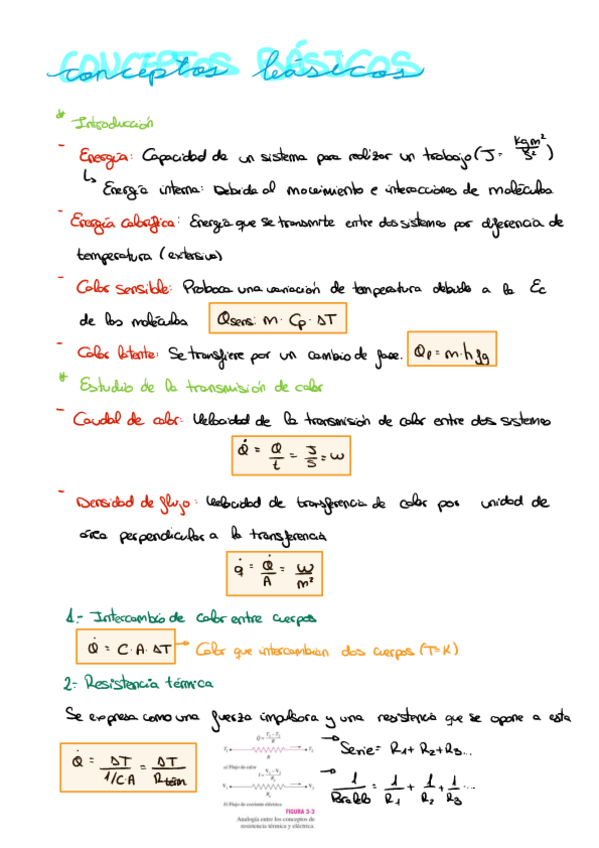 CONCEPTOS BÁSICOS
conceptos básicos
* Introducción
- Energía: Capacidad de un sistema para realizar un trabajo (J = kgm²/s²)
↳ Energía interna: Debida al movimiento e interacciones de moléculas
- Energía calorífica: Energía que se transmite entre dos sistemas por diferencia de
temperatura (extensiva)
- Calor sensible: Proboca una variación de temperatura debido a la Ec
de las moléculas Qsens: m · Cp · ΔT
- Calor latente: Se transfiere por un cambio de fase. Ql = m·hfg
* Estudio de la transmisión de calor
- Caudal de calor: Velocidad de la transmisión de calor entre dos sistemas
Q̇ = Q/t = J/s = W
- Densidad de flujo: Velocidad de transferencia de calor por unidad de
área perpendicular a la transferencia
q̇ = Q̇/A = W/m²
1.- Intercambio de calor entre cuerpos
Q̇ = C·A·ΔT → Calor que intercambian dos cuerpos (T=K)
2.- Resistencia térmica
Se expresa como una fuerza impulsora y una resistencia que se opone a esta
Q̇ = ΔT/(1/CA) = ΔT/Rtérm
T₁ R T₂
a) Flujo de calor
V₁ V₂
b) Flujo de corriente eléctrica
FIGURA 3-3
Analogía entre los conceptos de
resistencia térmica y eléctrica.
→ Serie = R1 + R2 + R3...
→ 1/Paralelo = 1/R1 + 1/R2 + 1/R3 ...